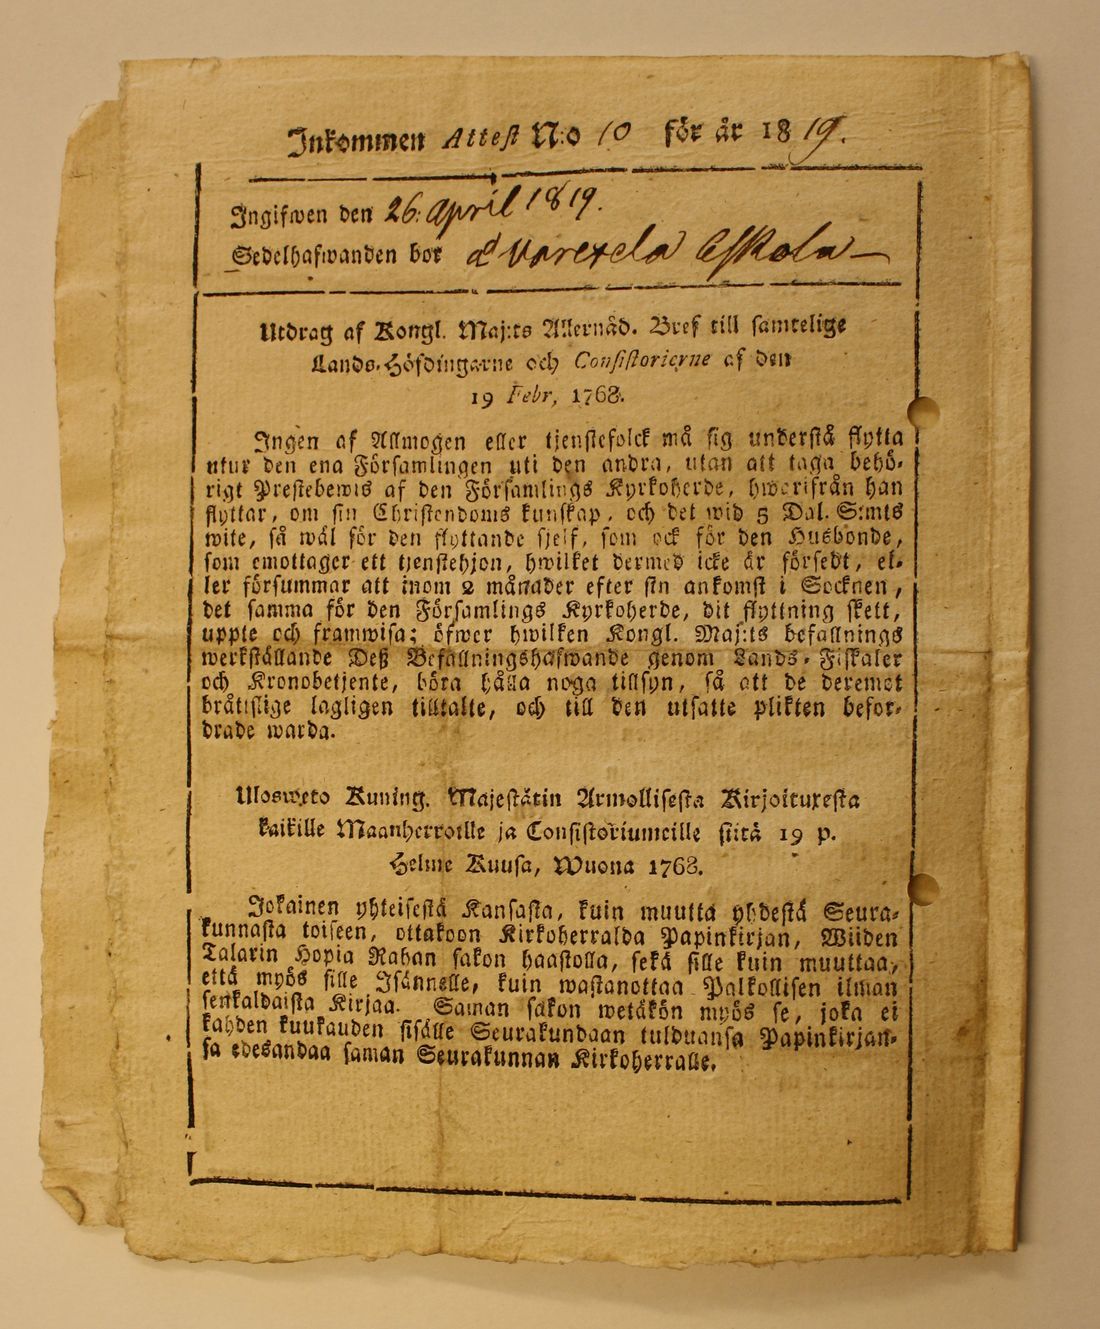 Inkommen Attest N:o 10 för år 1819.
Ingifwen den 26. April 1819.
Sedelhafwanden bor å Varexela Eskola
Utdrag af Kongl. Maj:ts Allernåd. Bref till samtelige
Lands-Höfdingarne och Consistorierne af den
19 Febr, 1768.
Ingen af Allmogen eller tjenstefolck må sig understå flytta
utur den ena Församlingen uti den andra, utan att taga behö-
rigt Prestebewis af den Församlings Kyrkoherde, hwarifrån han
flyttar, om sin Christendoms kunskap, och det wid 5 Dal. S:mts
wite, så wäl för den flyttande sjelf, som ock för den Husbonde,
som emottager ett tjenstehjon, hwilket dermed icke är försedt, el-
ler försummar att inom 2 månader efter sin ankomst i Socknen,
det samma för den Församlings Kyrkoherde, dit flyttning skett,
uppte och framwisa; öfwer hwilken Kongl. Maj:ts befallnings
werkställande Deß Befallningshafwande genom Lands-Fiskaler
och Kronobetjente, böra hålla noga tillsyn, så att de deremot
bråttslige lagligen tilltalte, och till den utsatte plikten befor-
drade warda.
Ulosweto Kuning. Majestätin Armollisesta Kirjoituxesta
kaikille Maanherroille ja Consistoriumeille siitä 19 p.
Helme Kuusa, Wuona 1768.
Jokainen yhteisestä Kansasta, kuin muutta yhdestä Seura-
kunnasta toiseen, ottakoon Kirkoherralda Papinkirjan, Wiiden
Talarin Hopia Rahan sakon haastolla, sekä sille kuin muuttaa,
että myös sille Isännelle, kuin wastanottaa Palkollisen ilman
senkaldaista Kirjaa. Saman sakon wetäkön myös se, joka ei
kahden kuukauden sisälle Seurakundaan tulduansa Papinkirjan-
sa edesandaa saman Seurakunnan Kirkoherralle.